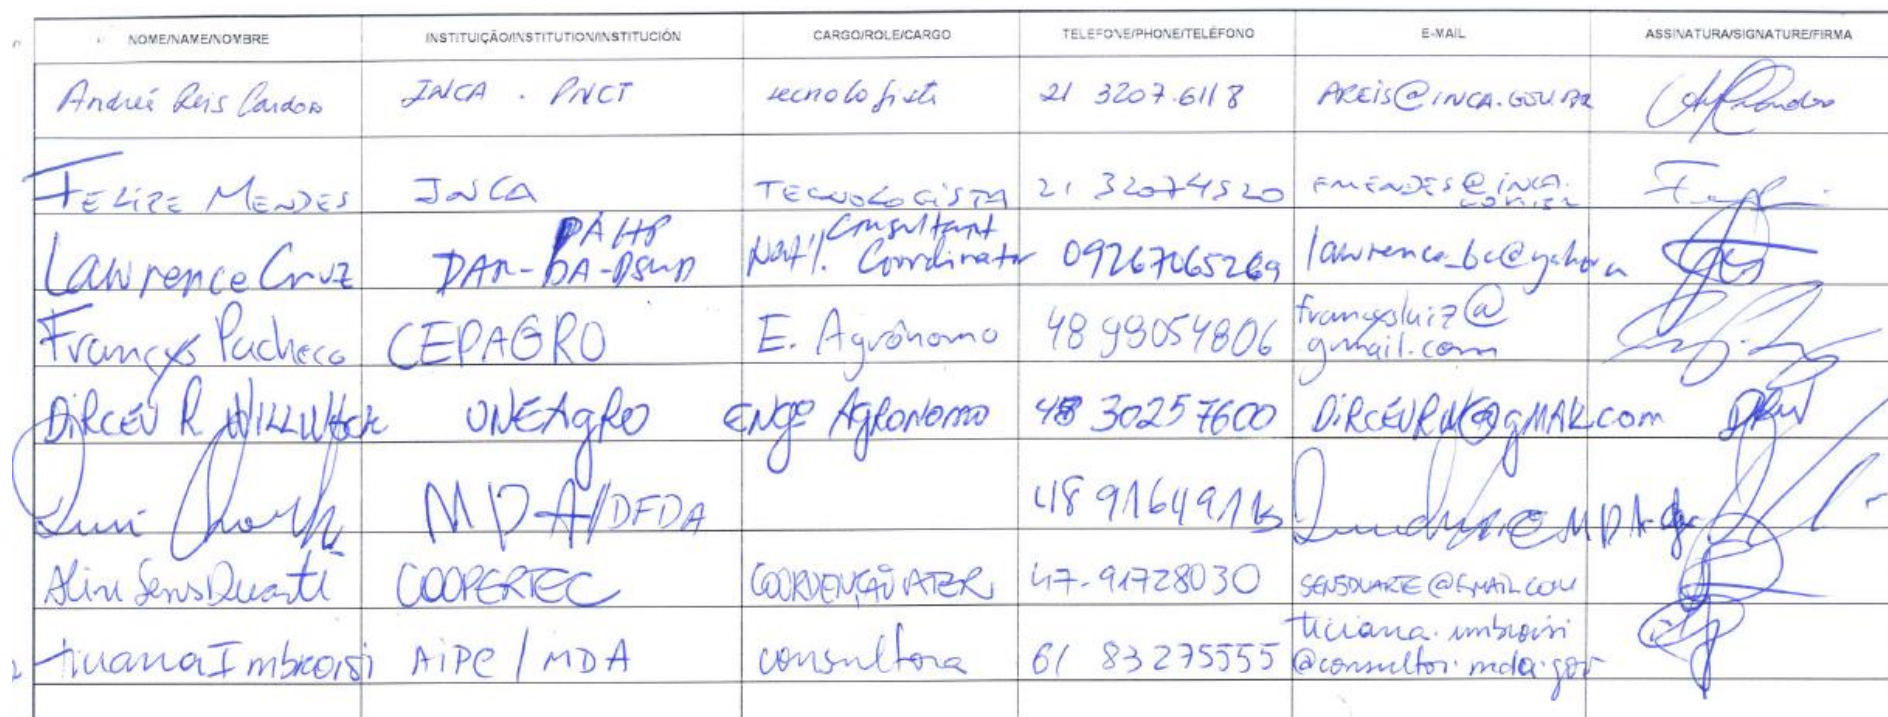 NOME/NAME/NOMBRE INSTITUIÇÃO/INSTITUTION/INSTITUCIÓN CARGO/ROLE/CARGO TELEFONE/PHONE/TELÉFONO E-MAIL ASSINATURA/SIGNATURE/FIRMA
Andreé Reis Cardoso INCA . PNCT tecnologista 21 3207.6118 AREIS@INCA.GOV.BR
FELIPE MENDES INCA TECNOLOGISTA 21 32074520 FMENDES@INCA.
GOV.BR
PAHP Consultant
Lawrence Cruz DAR-DA-DSWD Nat'l. Coordinator 09267065269 lawrence_bc@yahoo
françysluiz@
Françys Pacheco CEPAGRO E. Agrônomo 48 99054806 gmail.com
DiRCEU R WILLWOCK UNEAgRO ENGº AgRONOMO 48 30257600 DiRCEURW@gMAIL.com DRW
MDA/DFDA 48 9164911
Aline Sens Duarte COOPERTEC COORDENAÇÃO ATER 47-91728030 SENSDUARTE@GMAIL.COM
ticiana.imbroisi
ticiana Imbroisi AIPC / MDA consultora 61 83275555 @consultor.mda.gov